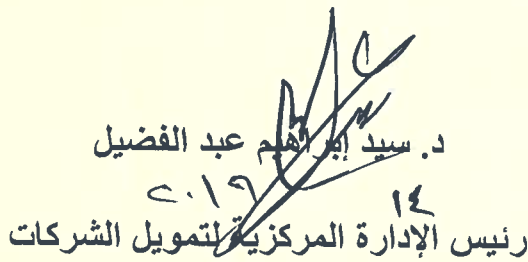 د. سيد إبراهيم عبد الفضيل
١٤ ٢٠١٩
رئيس الإدارة المركزية لتمويل الشركات